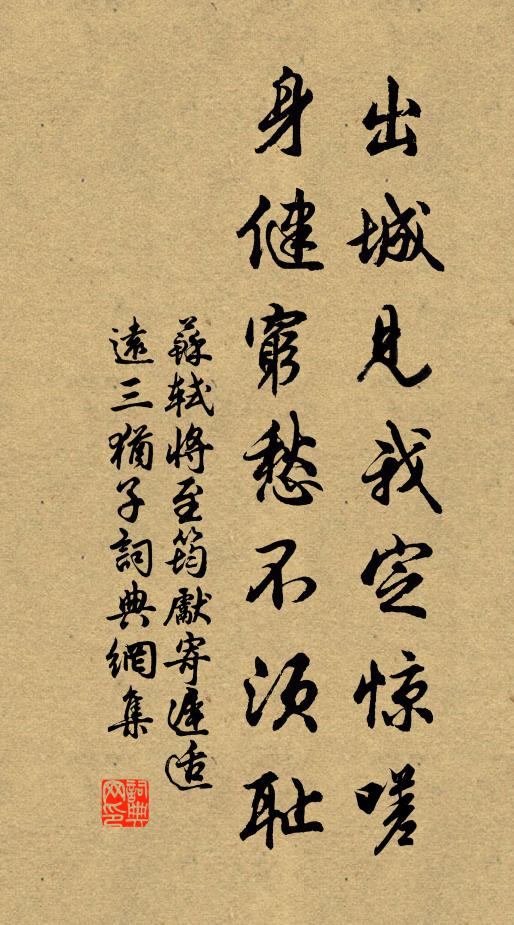 出城见我定惊嗟
身健窮愁不须耻
蘇轼將至筠獻寄遲适
遠三猶子詞典網集
詞典网印